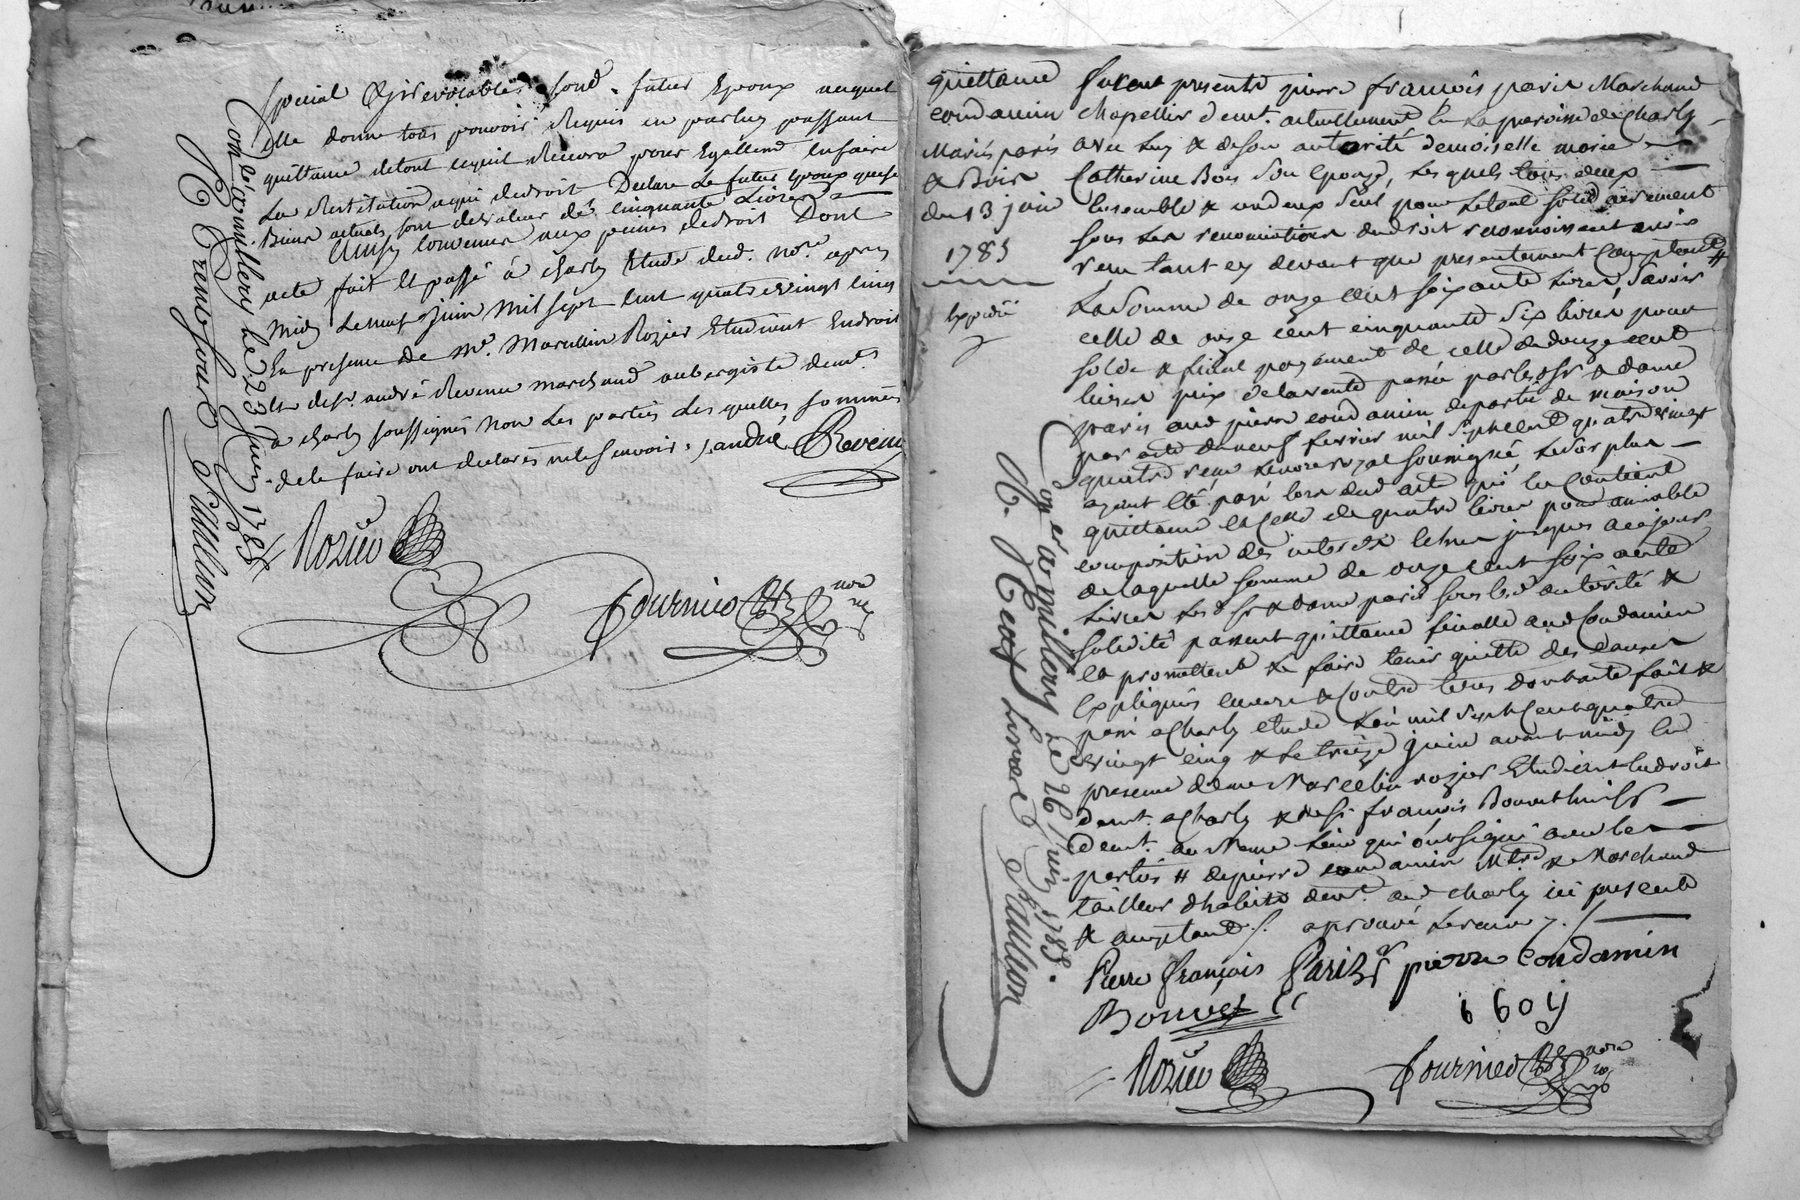 special & irrevocable sond. futur Epoux auquel
elle donne tous pouvoirs Requis en par luy passant
quittance de tout ce quil Recevra pour Egallem.t en faire
La Restitution a qui de droit Declare Le futur Epoux que ses
Biens actuels sont de valeur de cinquante Livres
Ainsy convenu aux peines de droit Dont
acte fait et passé à charly Etude dud. no.re apres
midy Le neuf juin mil sept cent quatre vingt cinq
En presence de m.e Marcellin Rozier Etudient En droit
et de s.r andré Revenu marchand aubergiste dem.ts
a charly soussignés non Les parties Les quelles sommées
de le faire ont declaré ne le sçavoir. / andré Reveniy
Rozier
fournier
no.re
Con.lé à millery le 23 juin 1785
R. trente sous
quittance
condamin
Mariés paris
& Bois
du 13 juin
1785
Expedié
furent presents pierre francois paris Marchand
Chapellier dem.t actuellement en La paroisse de Charly
avec luy & de son autorité demoiselle marie
Catherine Bois son Epouse, Lesquels tous deux
Ensemble & un deux seul pour Le tout solidairement
sous Les renonciations de droit reconnoissent avoir
reçu tant cy devant que presentement Comptant #
La somme de onze cent soixante Livres, Savoir
celle de onze cent cinquante six livres pour
solde & final payement de celle de douze cent
livres prix de la vente passée par les d. sr & dame
paris aud pierre condamin de partie de maison
par acte du neuf fevrier mil sept cent quatre vingt
quatre reçu le no.re royal soussigné Le surplus
ayant Eté payé lors dud acte qui En Contient
quittance et celle de quatre livres pour amiable
composition des interets Echus jusques a ce jour
de laquelle somme de onze cent soixante
Livres Les d. sr & dame paris sous lad. autorité &
solidité passent quittance finalle aud Condamin
et promettent Le faire tenir quitte des causes
Expliquées envers & contre tous dont acte fait &
passé a Charly etude L'an mil sept cent quatre
vingt cinq & le treize juin avant midy En
presence de me Marcelin rozier Etudient en droit
demt. a Charly & de sr francois Bouvet
demt. au Meme Lieu qui ont signé avec les
parties # de pierre condamin Mtre & Marchand
tailleur d'habits demt. aud charly ici present
& acceptant /. aprouvé Le renvoy. /.
Pierre françois Pariz pierre Condamin
Bouvet
6 60 ıȷ
Rozier
fournier
no.re
Con.e à millery le 26 juin 1785.
R. neuf livres